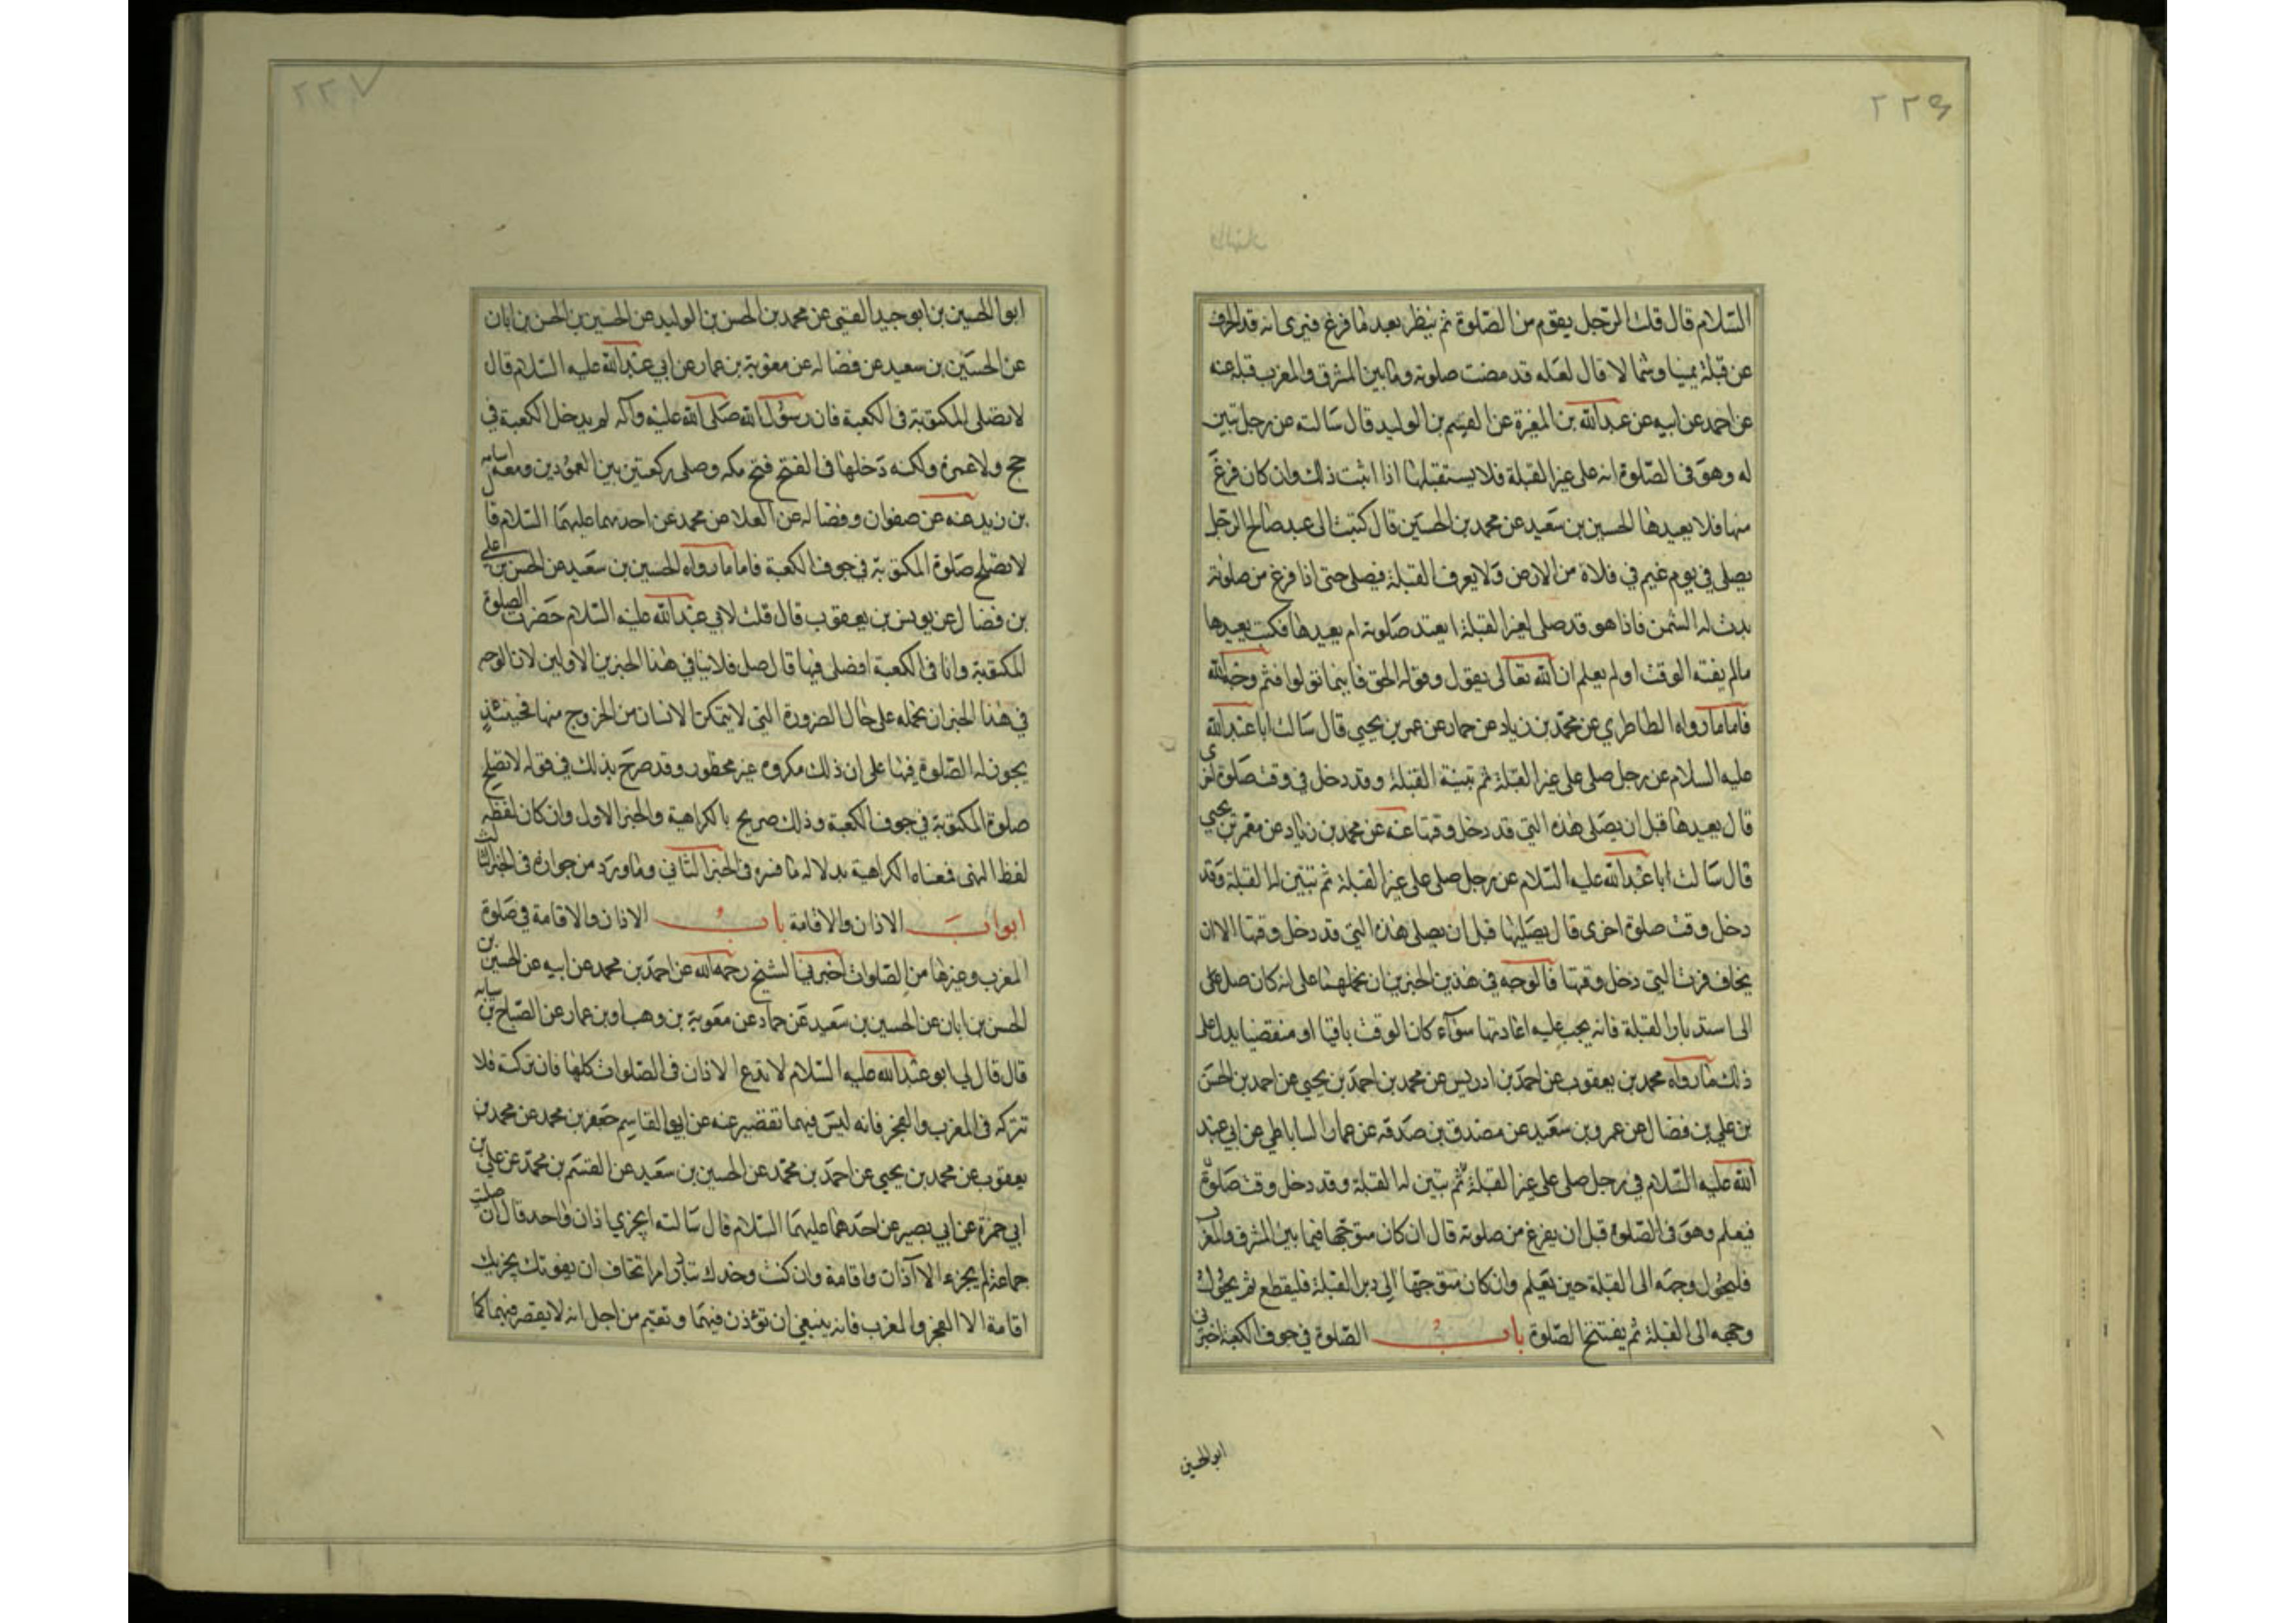 ٢٢٦
السّلام قال قلت الرّجل يقوم من الصّلوة ثم ينظر بعد ما فرغ فيرى انه قد انحرف
عن قبلة يمينا وشمالا قال لعله قد مضت صلوته وما بين المشرق والمغرب قبله عنه
عن احمد عن ابيه عن عبدالله بن المغيرة عن القسم بن الوليد قال سالته عن رجل تبين
له وهو فى الصّلوة انه على غير القبلة فلا يستقبلها اذا اثبت ذلك وان كان فرغ
منها فلا يعيدها الحسين بن سعيد عن محمد بن الحسين قال كتبت الى عبد صالح الرّجل
يصلى في يوم غيم في فلاة من الارض ولا يعرف القبلة فيصلى حتى اذا فرغ من صلوته
بدت له الشمس فاذا هو قد صلى لغير القبلة ايعتد صلوته ام يعيدها فكتب يعيدها
مالم يفته الوقت اولم يعلم ان الله تعالى يقول وقوله الحق فاينما تولوا فثم وجه الله
فاما ما رواه الطاطري عن محمّد بن زياد عن حماد عن عمر بن يحيى قال سالت ابا عبدالله
عليه السلام عن رجل صلى على غير القبلة ثم تبينة القبلة وقد دخل في وقت صلوة اخرى
قال يعيدها قبل ان يصلى هذه التي قد دخل وقتها عنه عن محمد بن زياد عن معمر بن يحيى
قال سالت ابا عبدالله عليه السّلام عن رجل صلى على غير القبلة ثم تبين له القبلة وقد
دخل وقت صلوة اخرى قال يصليها قبل ان يصلى هذه التي قد دخل وقتها الا ان
يخاف فوت التي دخل وقتها فالوجه في هذين الخبرين ان نحملهما على انه كان صلى على
الى استدبار القبلة فانه يجب عليه اعادتها سوآء كان الوقت باقيا او منقضيا يدل على
ذلك ما رواه محمد بن يعقوب عن احمد بن ادريس عن محمد بن احمد بن يحيى عن احمد بن الحسن
بن علي بن فضال عن عمرو بن سعيد عن مصدق بن صدقه عن عمار الساباطي عن ابي عبد
الله عليه السّلام في رجل صلى على غير القبلة ثم تبين له القبلة وقد دخل وقت صلوة
فيعلم وهو فى الصّلوة قبل ان يفرغ من صلوته قال ان كان متوجّها فيما بين المشرق والمغرب
فليحول وجهه الى القبلة حين يعلم وان كان متوجّها الى دبر القبلة فليقطع ثم يحول
وجهه الى القبلة ثم يفتتح الصّلوة باب الصّلوة في جوف الكعبة اخبرني
ابوالحسين
٢٢٧
ابو الحسين بن ابو جيد القمي عن محمد بن الحسن بن الوليد عن الحسين بن الحسن بن ابان
عن الحسين بن سعيد عن فضاله عن معوية بن عمار عن ابي عبدالله عليه السّلام قال
لا تصلى المكتوبة فى الكعبة فان رسول الله صلى الله عليه وآله لم يدخل الكعبة في
حج ولا عمرة ولكنه دخلها فى الفتح فتح مكه وصلى ركعتين بين العمودين ومعه اسامه
بن زيد عنه عن صفوان وفضاله عن العلا عن محمد عن احدهما عليهما السّلام قال
لا تصلح صلوة المكتوبة في جوف الكعبة فاما ما رواه الحسين بن سعيد عن الحسن بن علي
بن فضال عن يونس بن يعقوب قال قلت لابي عبدالله عليه السّلام حضرت الصلوة
المكتوبة وانا فى الكعبة افصلى فيها قال صل فلا ينافي هذا الخبرين الاولين لان الوجه
في هذا الخبر ان نحمله على حال الضرورة التي لا يتمكن الانسان من الخروج منها فحينئذٍ
يجوز له الصّلوة فيها على ان ذلك مكروه غير محظور وقد صرح بذلك في قوله لا تصلح
صلوة المكتوبة في جوف الكعبة وذلك صريح بالكراهية والخبر الاول وان كان لفظه
لفظ النهى فمعناه الكراهية بدلاله ما فسره فى الخبر الثاني وما ورد من جوازه فى الخبر الثالث
ابواب الاذان والاقامة باب الاذان والاقامة في صلوة
المغرب وغيرها من الصلوات اخبرني الشيخ رحمه الله عن احمد بن محمد عن ابيه عن الحسين بن
الحسن بن ابان عن الحسين بن سعيد عن حماد عن معوية بن وهب اوبن عمار عن الصباح بن سيابه
قال قال لي ابو عبدالله عليه السّلام لا تدع الاذان فى الصّلوات كلها فان تركته فلا
تتركه فى المغرب والفجر فانه ليس فيهما تقصير عنه عن ابوالقاسم جعفر بن محمد عن محمد بن
يعقوب عن محمد بن يحيى عن احمد بن محمد عن الحسين بن سعيد عن القسم بن محمد عن علي بن
ابي حمزة عن ابي بصير عن احدهما عليهما السّلام قال سالته ايجزي اذان واحد قال ان صليت
جماعة لم يجزء الا آذان واقامة وان كنت وحدك تبادر امرا تخاف ان يفوتك يجزيك
اقامة الا الفجر والمغرب فانه ينبغي ان تؤذن فيهما وتقيم من اجل انه لا يقصر فيهما كما